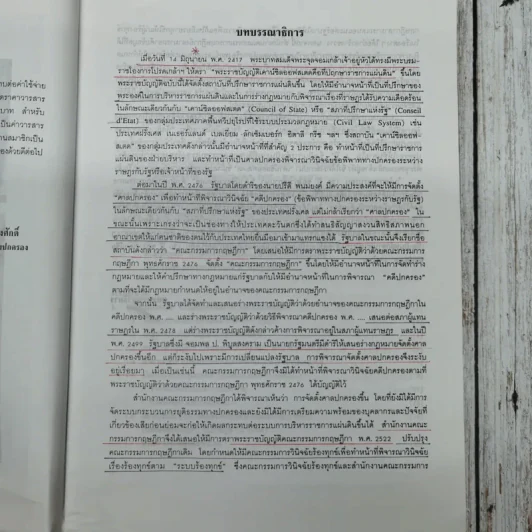 บทบรรณาธิการ
เมื่อวันที่ 14 มิถุนายน พ.ศ. 2417 พระบาทสมเด็จพระจุลจอมเกล้าเจ้าอยู่หัวได้ทรงมีพระบรม-
ราชโองการโปรดเกล้าฯ ให้ตรา "พระราชบัญญัติเคาน์ซิลออฟสเตดคือที่ปฤกษาราชการแผ่นดิน" ขึ้นโดย
พระราชบัญญัติฉบับนี้ได้จัดตั้งสถาบันที่ปรึกษาราชการแผ่นดินขึ้น โดยให้มีอำนาจหน้าที่เป็นที่ปรึกษาของ
พระองค์ในการบริหารราชการแผ่นดินและในการร่างกฎหมายกับพิจารณาเรื่องที่ราษฎรได้รับความเดือดร้อน
ในลักษณะเดียวกันกับ "เคาน์ซิลออฟสเตด" (Council of State) หรือ "สภาที่ปรึกษาแห่งรัฐ" (Conseil
d'Etat) ของกลุ่มประเทศภาคพื้นทวีปยุโรปที่ใช้ระบบประมวลกฎหมาย (Civil Law System) เช่น
ประเทศฝรั่งเศส เนเธอร์แลนด์ เบลเยี่ยม ลักเซมเบอร์ก อิตาลี กรีซ ฯลฯ ซึ่งสถาบัน "เคาน์ซิลออฟ-
สเตด" ของกลุ่มประเทศดังกล่าวนั้นมีอำนาจหน้าที่ที่สำคัญ 2 ประการ คือ ทำหน้าที่เป็นที่ปรึกษาราชการ
แผ่นดินของฝ่ายบริหาร และทำหน้าที่เป็นศาลปกครองพิจารณาวินิจฉัยข้อพิพาททางปกครองระหว่าง
ราษฎรกับรัฐหรือเจ้าหน้าที่ของรัฐ
ต่อมาในปี พ.ศ. 2476 รัฐบาลโดยดำริของนายปรีดี พนมยงค์ มีความประสงค์ที่จะให้มีการจัดตั้ง
"ศาลปกครอง" เพื่อทำหน้าที่พิจารณาวินิจฉัย "คดีปกครอง" (ข้อพิพาททางปกครองระหว่างราษฎรกับรัฐ)
ในลักษณะเดียวกันกับ "สภาที่ปรึกษาแห่งรัฐ" ของประเทศฝรั่งเศส แต่ไม่กล้าเรียกว่า "ศาลปกครอง" ใน
ขณะนั้นเพราะเกรงว่าจะเป็นช่องทางทำให้ประเทศตะวันตกซึ่งได้ทำสนธิสัญญาสงวนสิทธิสภาพนอก
อาณาเขตให้แก่คนชาติของตนไว้กับประเทศไทยยื่นมือมาเข้ามาแทรกแซงได้ รัฐบาลในขณะนั้นจึงเรียกชื่อ
สถาบันดังกล่าวว่า "คณะกรรมการกฤษฎีกา" โดยเสนอร่างพระราชบัญญัติว่าด้วยคณะกรรมการ
กฤษฎีกา พุทธศักราช 2476 จัดตั้ง "คณะกรรมการกฤษฎีกา" ขึ้นโดยให้มีอำนาจหน้าที่ในการจัดทำร่าง
กฎหมายและให้คำปรึกษาทางกฎหมายแก่รัฐบาลกับให้มีอำนาจหน้าที่ในการพิจารณา "คดีปกครอง"
ตามที่จะได้มีกฎหมายกำหนดให้อยู่ในอำนาจของคณะกรรมการกฤษฎีกา
จากนั้น รัฐบาลได้จัดทำและเสนอร่างพระราชบัญญัติว่าด้วยอำนาจของคณะกรรมการกฤษฎีกาใน
คดีปกครอง พ.ศ. .... และร่างพระราชบัญญัติว่าด้วยวิธีพิจารณาคดีปกครอง พ.ศ. .... เสนอต่อสภาผู้แทน
ราษฎรใน พ.ศ. 2478 แต่ร่างพระราชบัญญัติดังกล่าวค้างการพิจารณาอยู่ในสภาผู้แทนราษฎร และในปี
พ.ศ. 2499 รัฐบาลซึ่งมี จอมพล ป. พิบูลสงคราม เป็นนายกรัฐมนตรีมีดำริให้เสนอร่างกฎหมายจัดตั้งศาล
ปกครองขึ้นอีก แต่ก็ระงับไปเพราะมีการเปลี่ยนแปลงรัฐบาล การพิจารณาจัดตั้งศาลปกครองจึงระงับ
อยู่เรื่อยมา เมื่อเป็นเช่นนี้ คณะกรรมการกฤษฎีกาจึงมิได้ทำหน้าที่พิจารณาวินิจฉัยคดีปกครองตามที่
พระราชบัญญัติว่าด้วยคณะกรรมการกฤษฎีกา พุทธศักราช 2476 ได้บัญญัติไว้
สำนักงานคณะกรรมการกฤษฎีกาได้พิจารณาเห็นว่า การจัดตั้งศาลปกครองขึ้น โดยที่ยังมิได้มีการ
จัดระบบกระบวนการยุติธรรมทางปกครองและยังมิได้มีการเตรียมความพร้อมของบุคลากรและปัจจัยที่
เกี่ยวข้องเสียก่อนย่อมจะก่อให้เกิดผลกระทบต่อระบบการบริหารราชการแผ่นดินขึ้นได้ สำนักงานคณะ
กรรมการกฤษฎีกาจึงได้เสนอให้มีการตราพระราชบัญญัติคณะกรรมการกฤษฎีกา พ.ศ. 2522 ปรับปรุง
คณะกรรมการกฤษฎีกาเดิม โดยกำหนดให้มีคณะกรรมการวินิจฉัยร้องทุกข์เพื่อทำหน้าที่พิจารณาวินิจฉัย
เรื่องร้องทุกข์ตาม "ระบบร้องทุกข์" ซึ่งคณะกรรมการวินิจฉัยร้องทุกข์และสำนักงานคณะกรรมการ